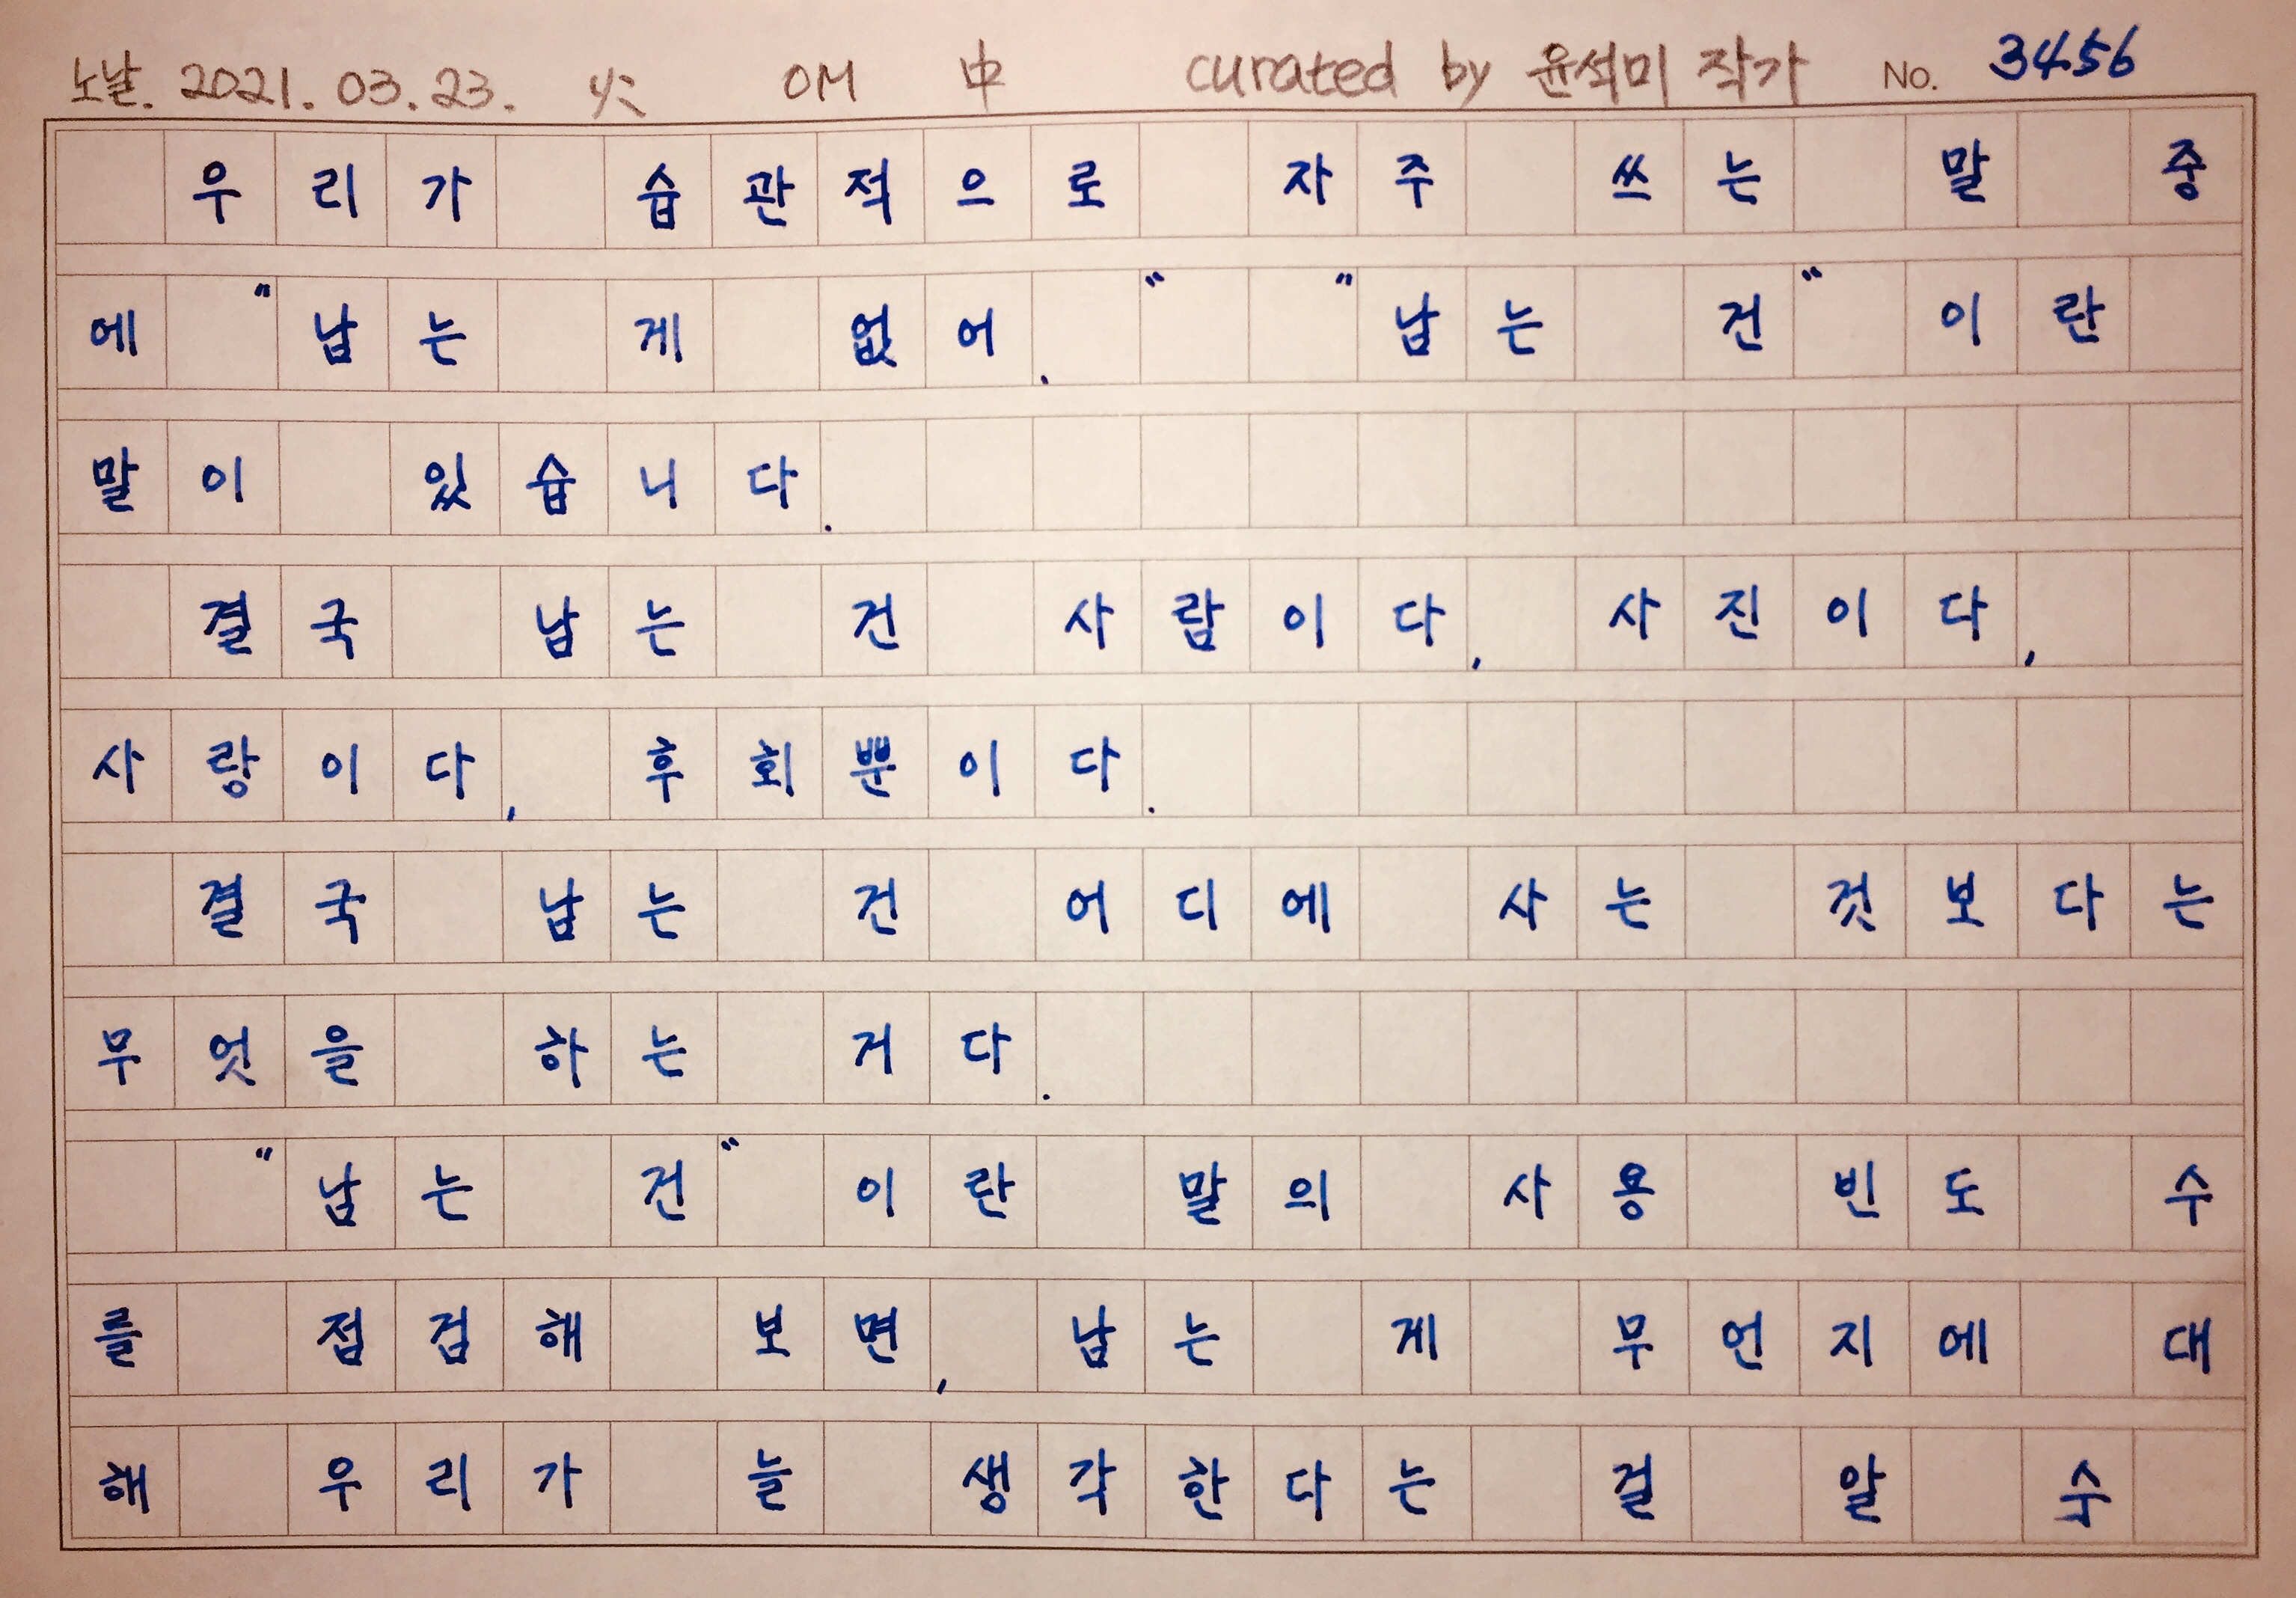 노날. 2021. 03. 23. 火 OM 中 curated by 윤석미 작가 No. 3456
우리가 습관적으로 자주 쓰는 말 중
에 "남는 게 없어." "남는 건" 이란
말이 있습니다.
결국 남는 건 사람이다, 사진이다,
사랑이다, 후회뿐이다.
결국 남는 건 어디에 사는 것보다는
무엇을 하는 거다.
"남는 건" 이란 말의 사용 빈도 수
를 점검해 보면, 남는 게 무언지에 대
해 우리가 늘 생각한다는 걸 알 수